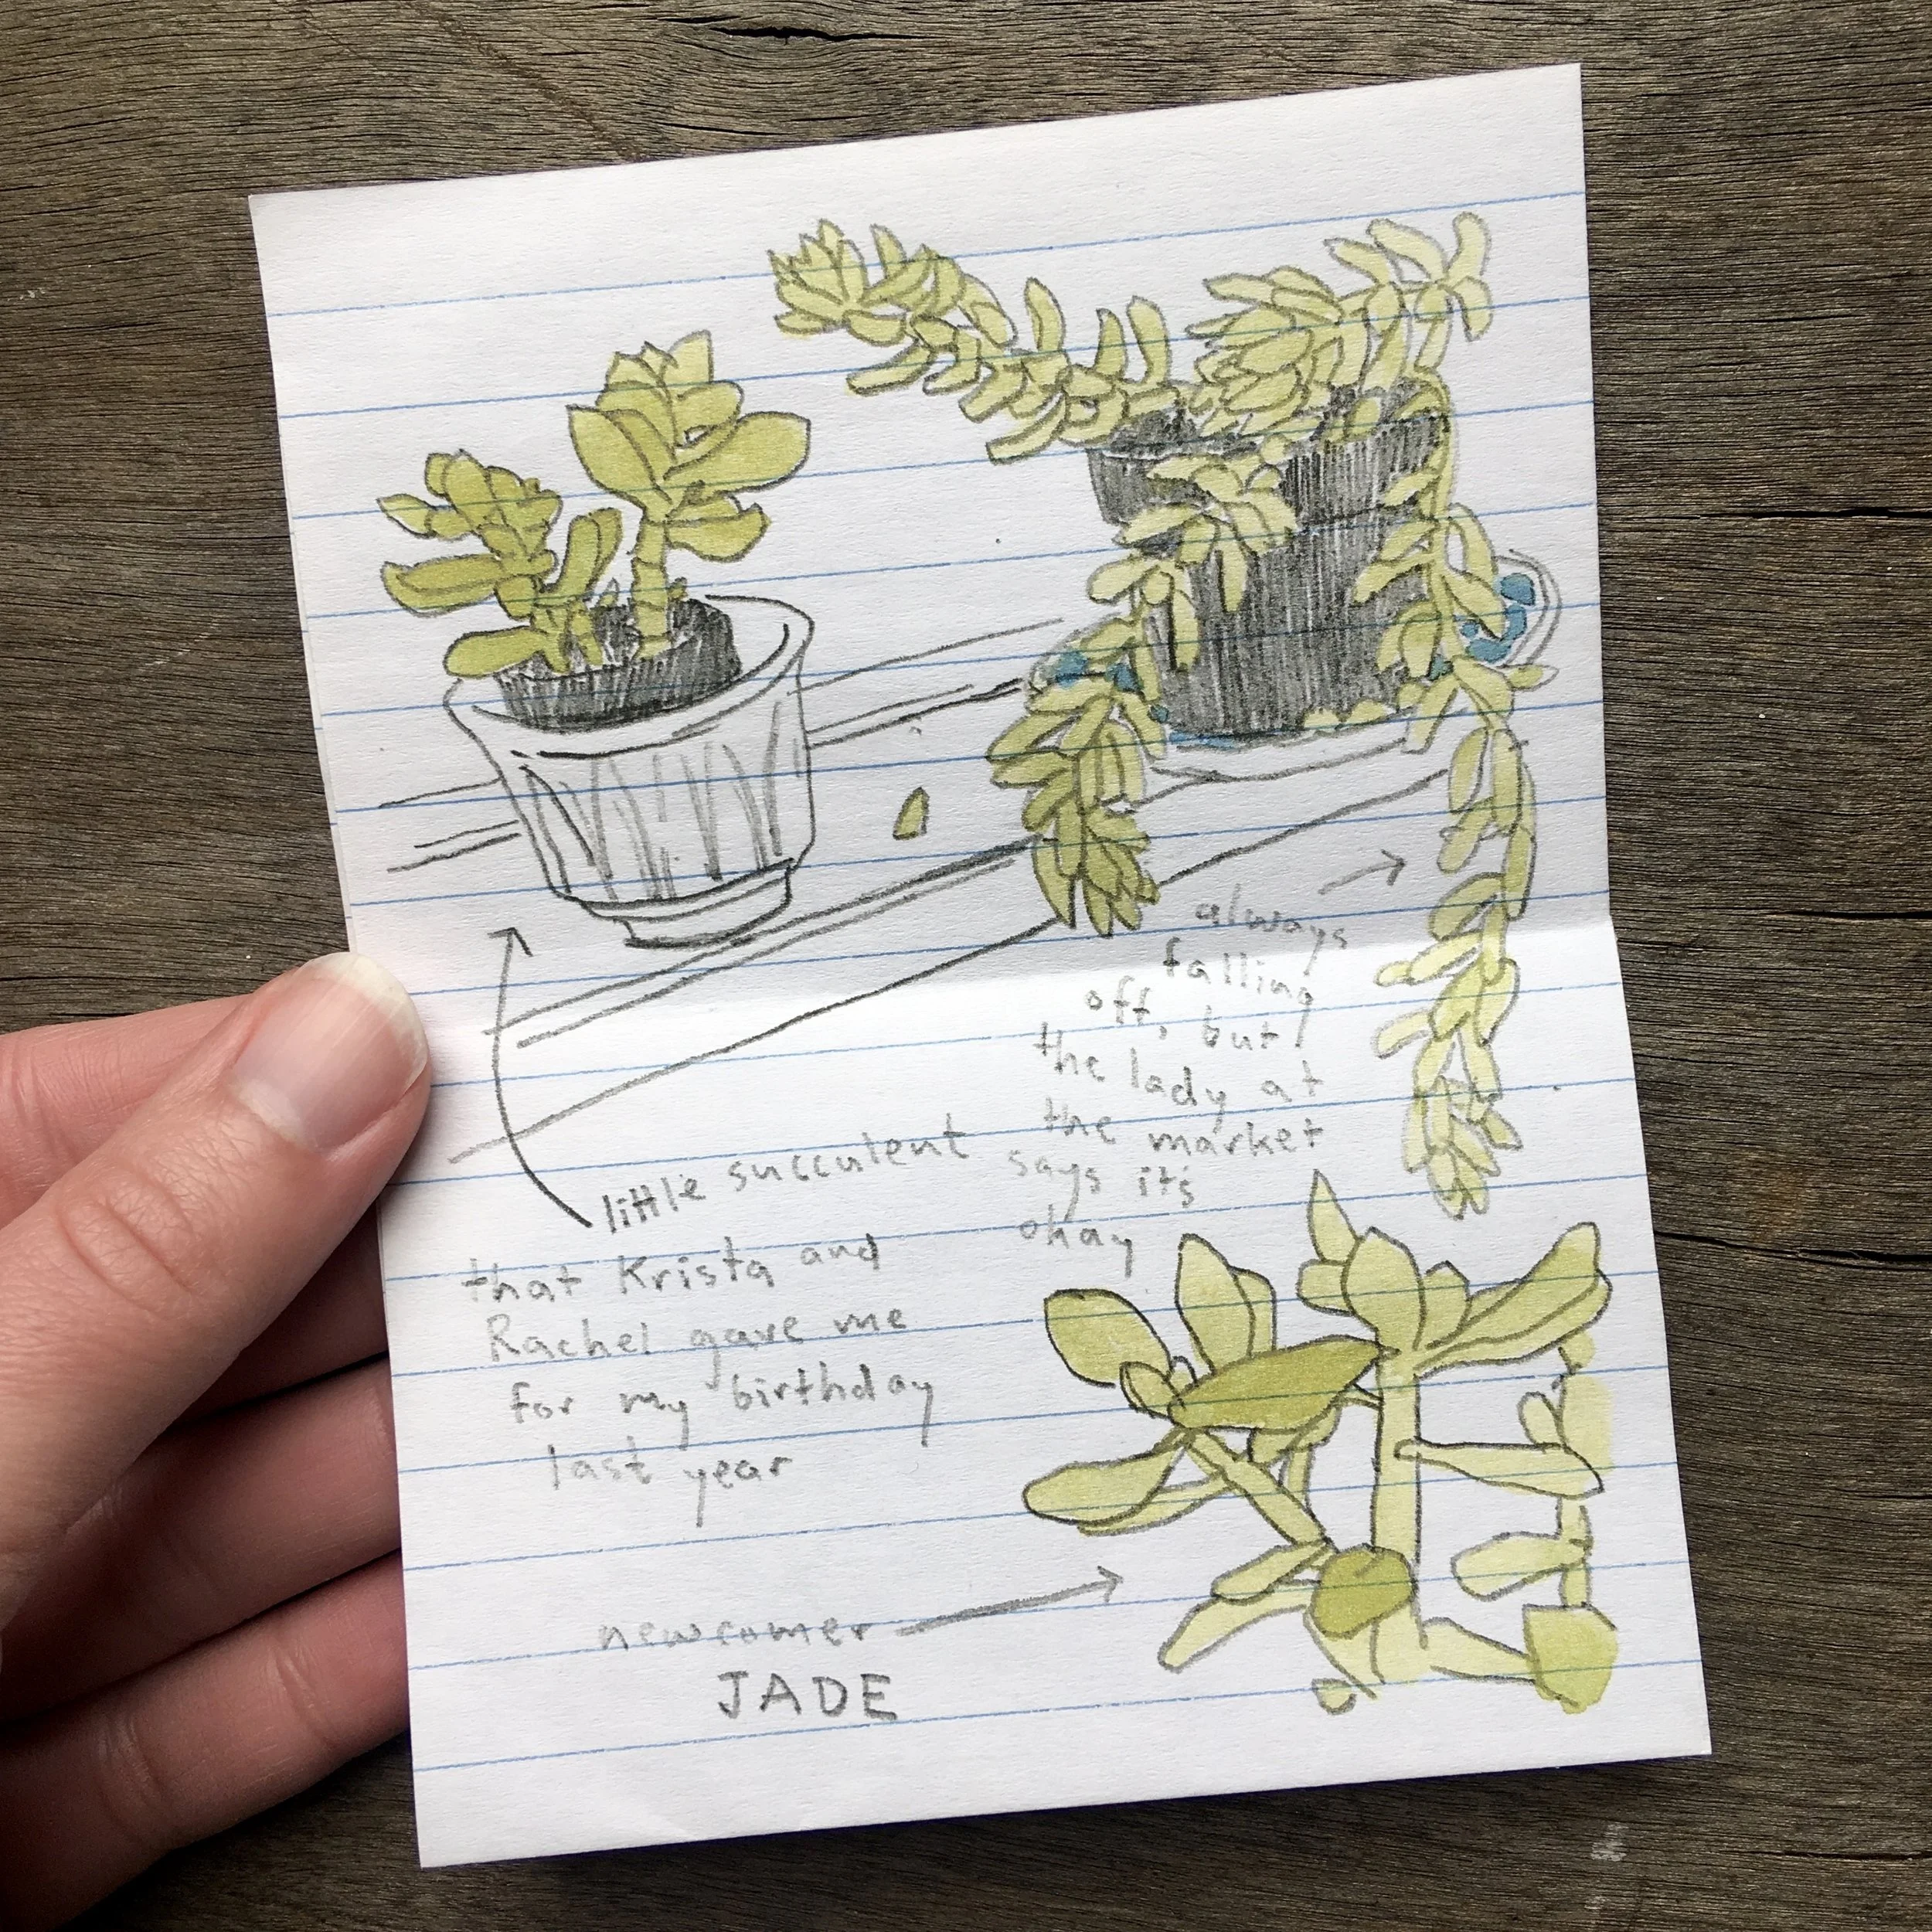 always
falling
off, but
the lady at
the market
says it's
okay
little succulent
that Krista and
Rachel gave me
for my birthday
last year
newcomer
JADE